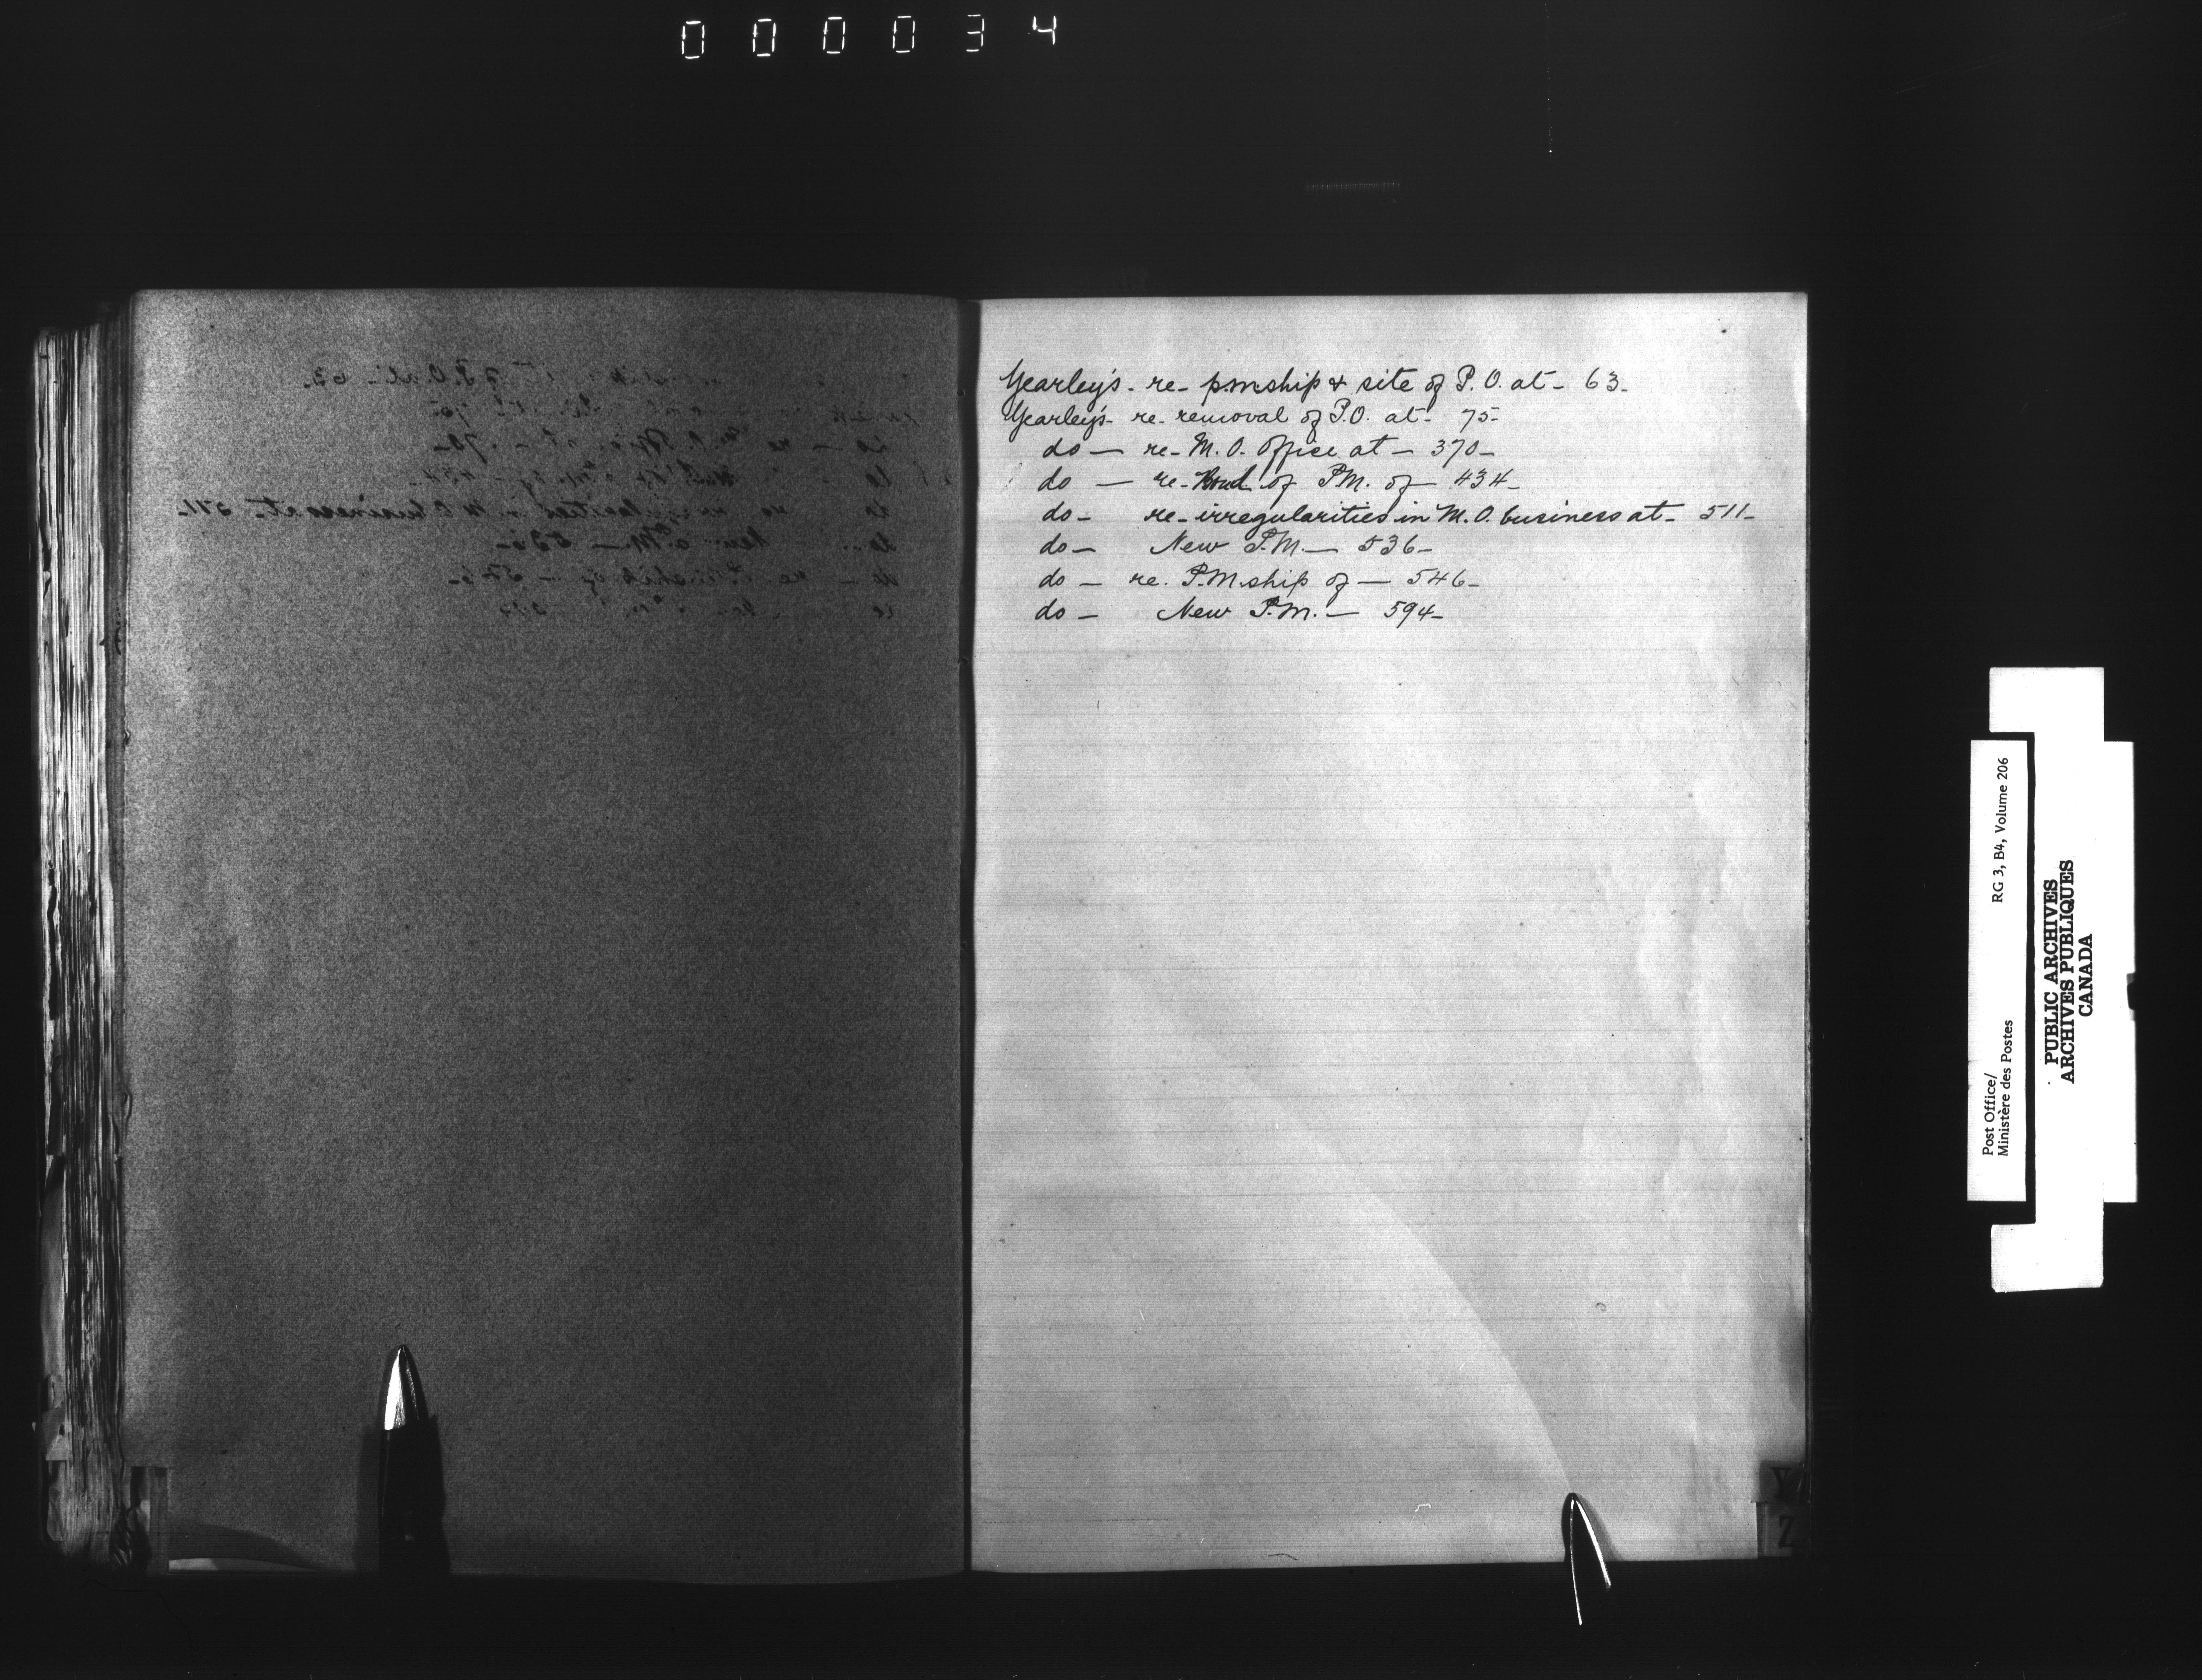 000034
Yearley's - re - p.m.ship & site of P. O. at - 63 -
Yearley's - re - removal of P.O. at - 75 -
do — re - M. O. Office at — 370 —
do — re - Bond of P.M. of — 434 —
do - re - irregularities in M. O. business at - 511 -
do - New P.M. — 536 -
do - re. P.M.ship of — 546 -
do - New P.M. — 594 -
Y
Z
Post Office/
Ministère des Postes
RG 3, B4, Volume 206
PUBLIC ARCHIVES
ARCHIVES PUBLIQUES
CANADA